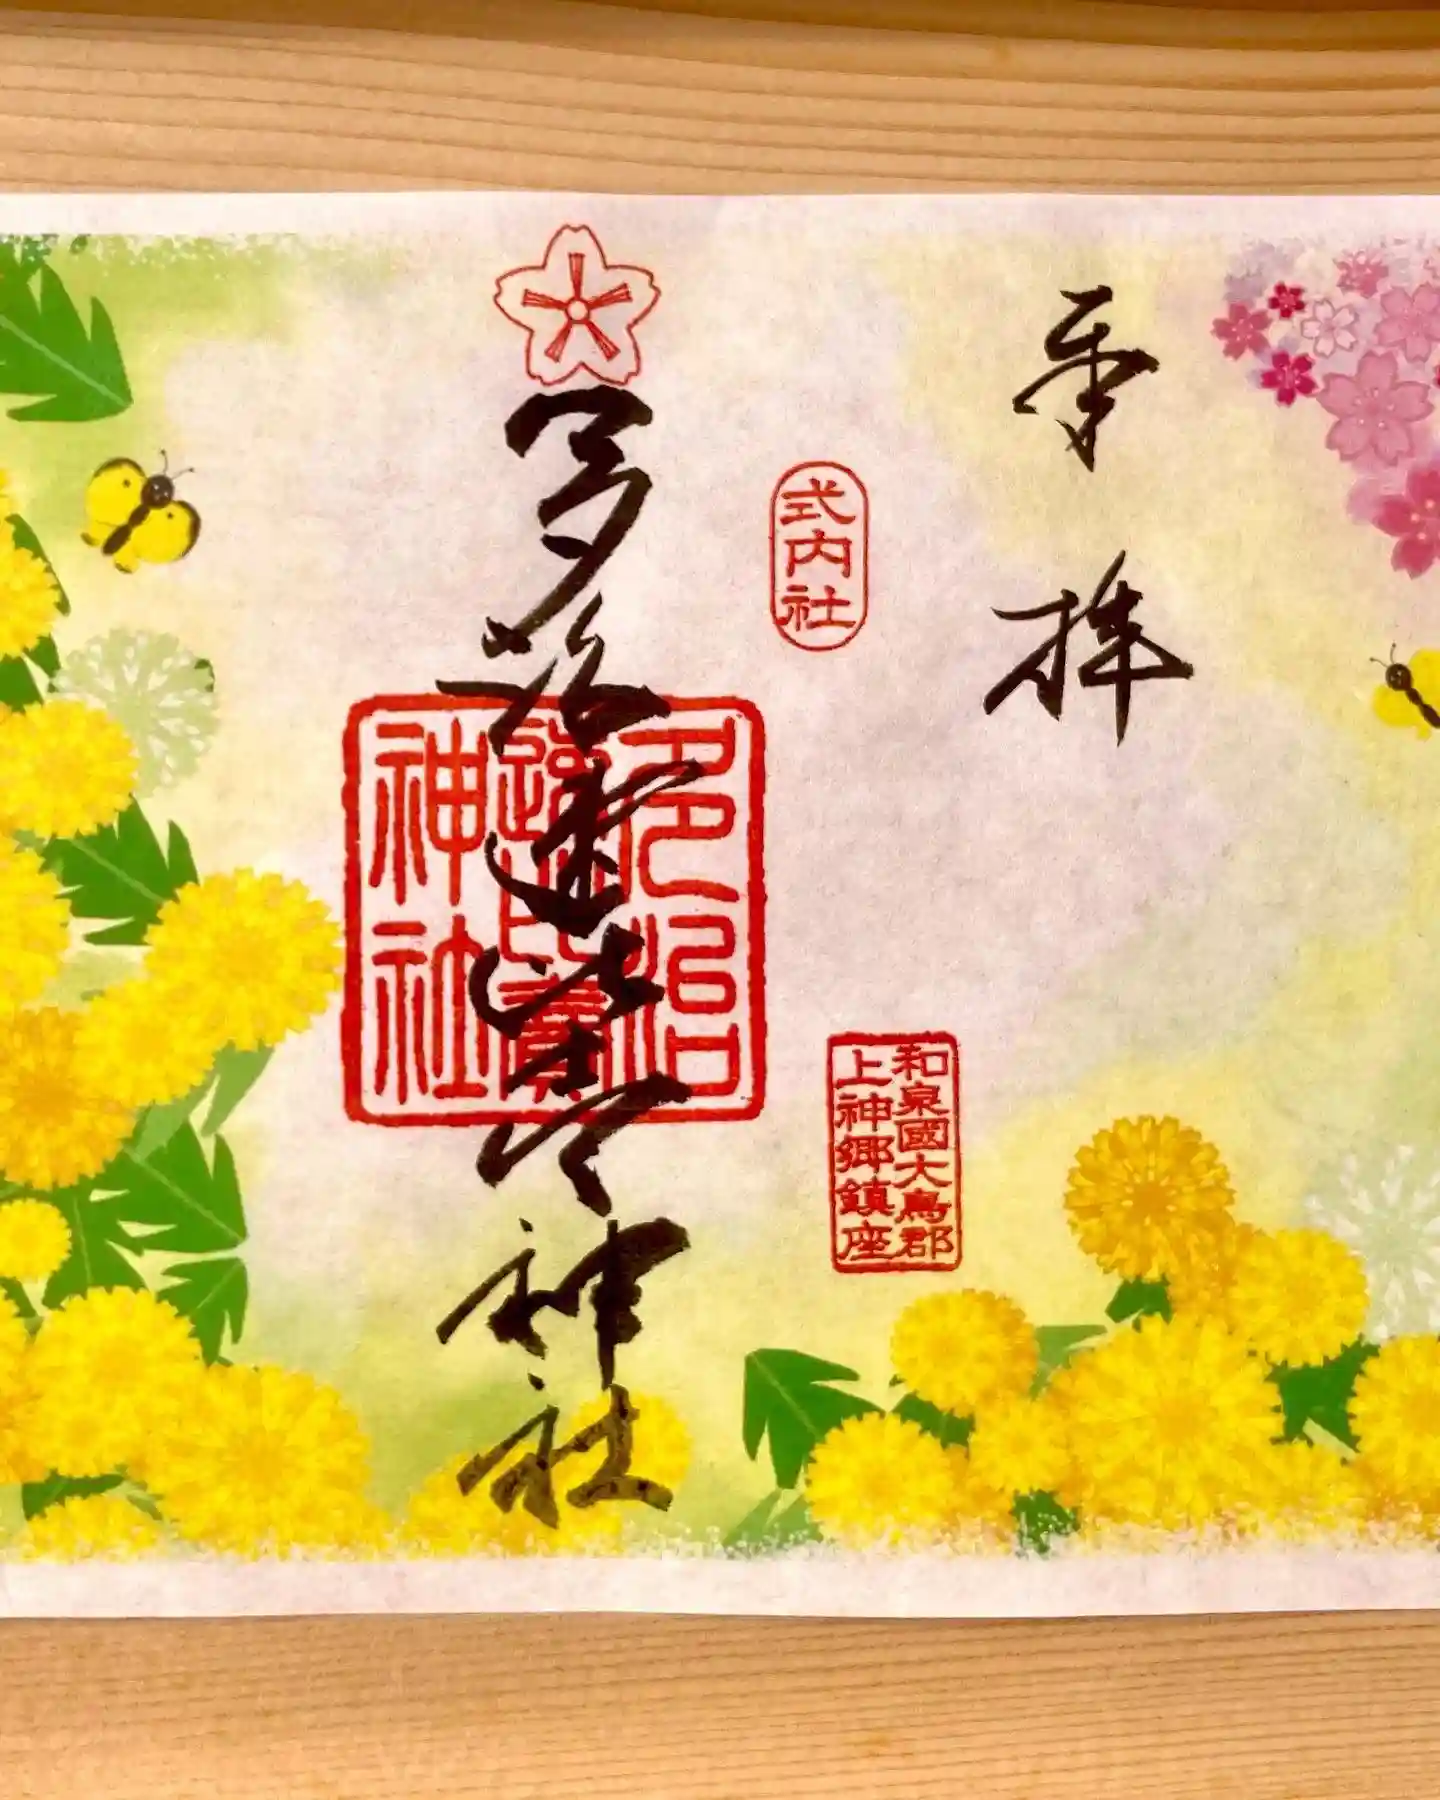 奉拝
式内社
和泉國大鳥郡
上神郷鎮座
多治速比売神社
多治
速比賣
神社